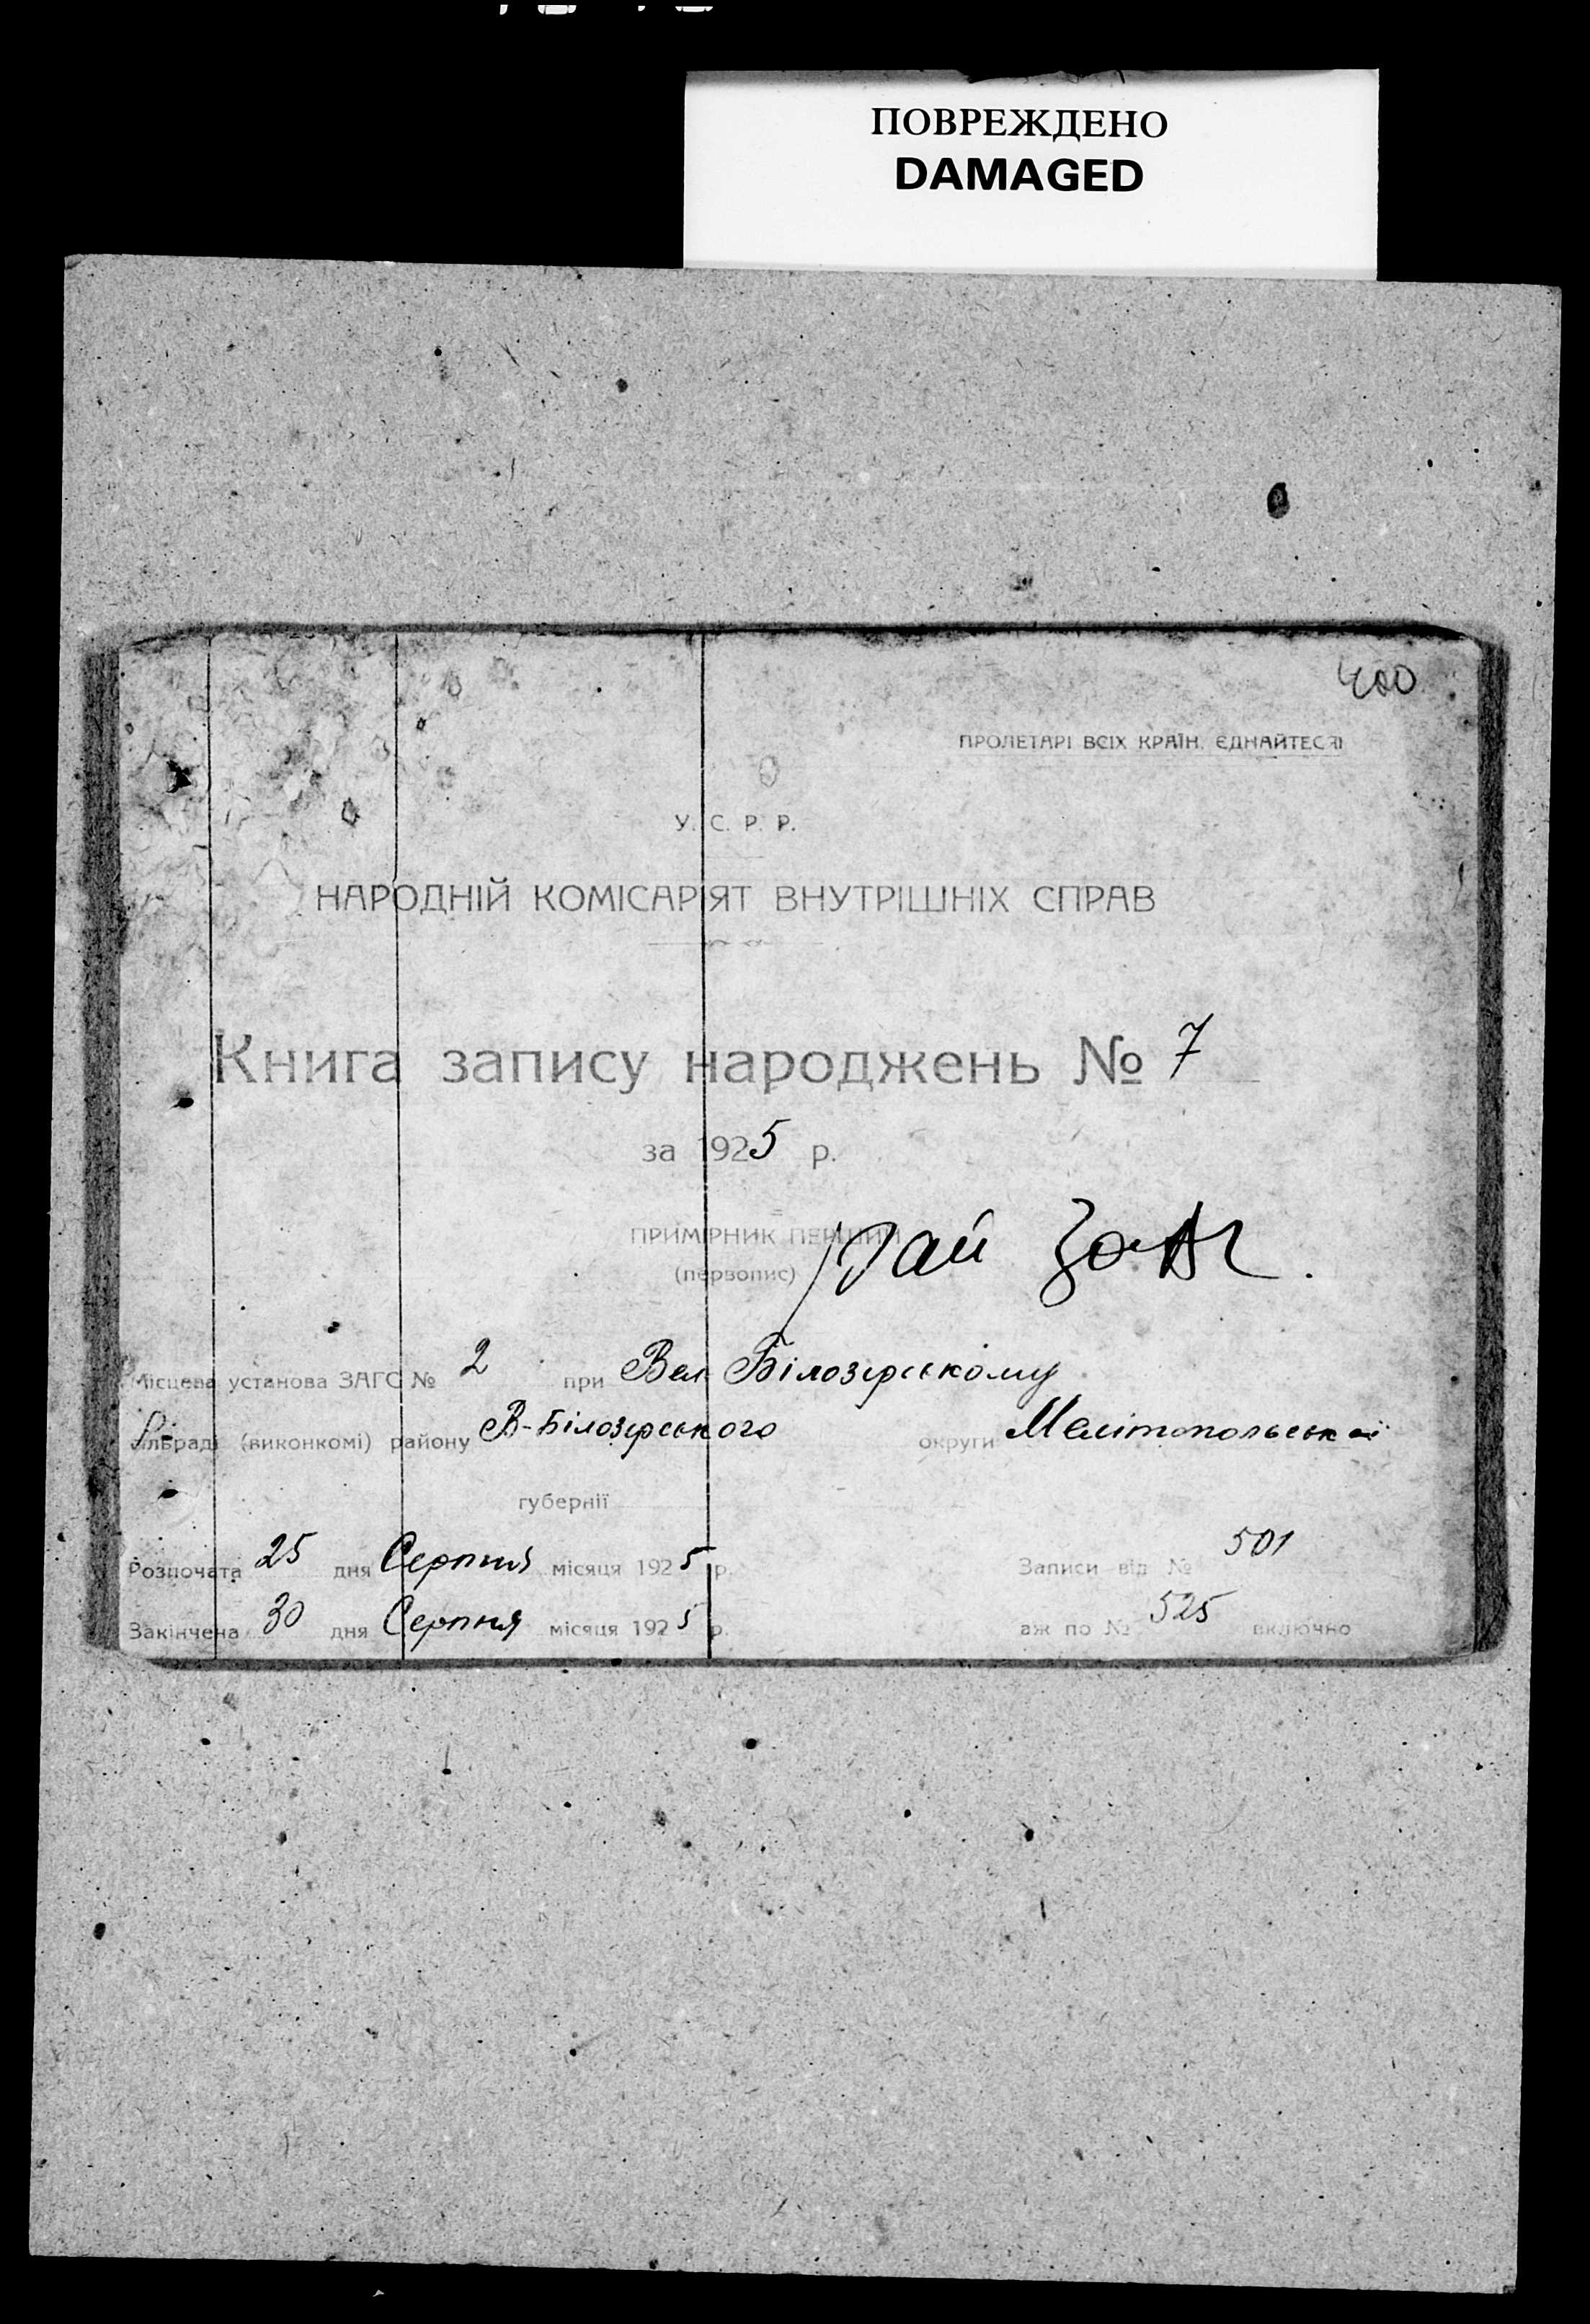 ПОВРЕЖДЕНО
DAMAGED
400
ПРОЛЕТАРІ ВСІХ КРАЇН, ЄДНАЙТЕСЯ!
У. С. Р. Р.
НАРОДНІЙ КОМІСАРІЯТ ВНУТРІШНІХ СПРАВ
Книга запису народжень № 7
за 1925 р.
ПРИМІРНИК ПЕРШИЙ
(первопис)
Рай ЗАГС.
Місцева установа ЗАГС № 2 при Вел Білозерському
сільраді (виконкомі) району В-Білозерського округи Мелітопольської
губернії
Розпочата 25 дня Серпня місяця 1925 р. Записи від № 501
Закінчена 30 дня Серпня місяця 1925 р. аж по № 525 включно